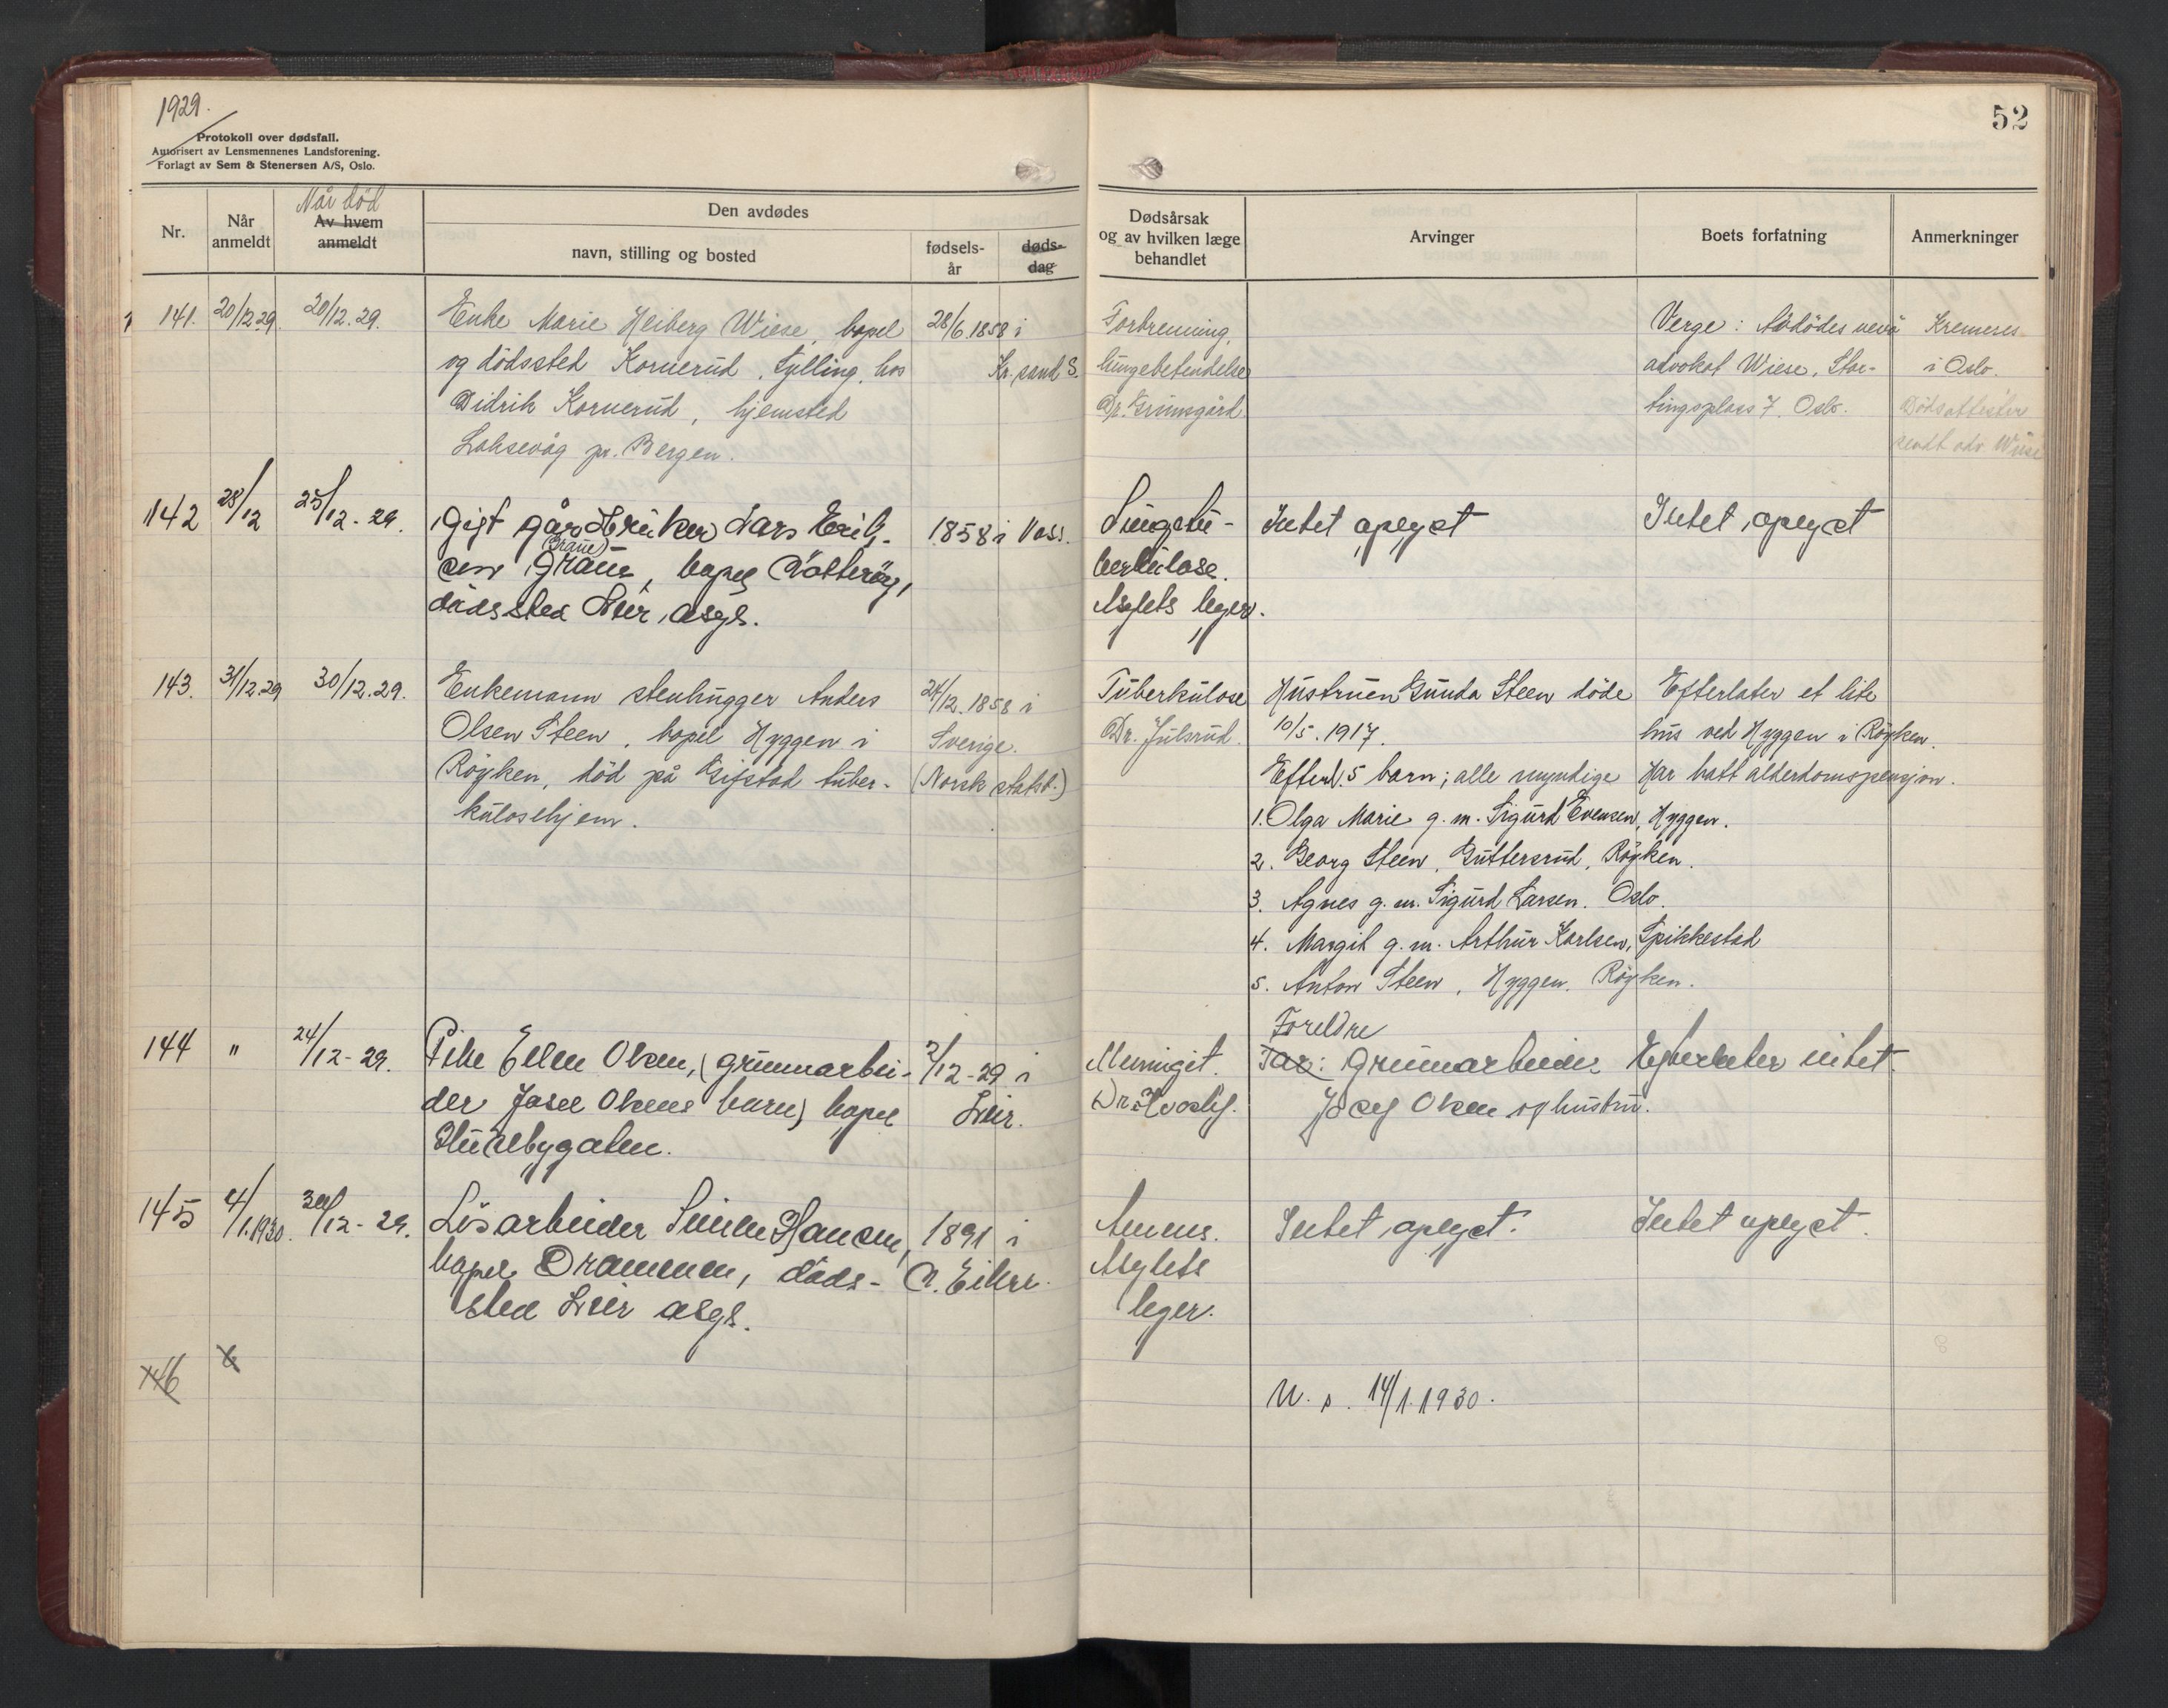 1929.
Protokoll over dødsfall.
Autorisert av Lensmennenes Landsforening.
Forlagt av Sem & Stenersen A/S, Oslo.
52
Nr.
Når anmeldt
Når død
Av hvem anmeldt
Den avdødes
navn, stilling og bosted
fødsels-
år
døds-
dag
Dødsårsak
og av hvilken læge
behandlet
Arvinger
Boets forfatning
Anmerkninger
141. 20/12 29. 20/12. 29. Enke Marie Heiberg Wiese, bopel 28/6 1858 i
og dödssted Kornerud, Sylling, hos Kr. sand S.
Didrik Kornerud, hjemsted
Laksevåg pr. Bergen.
Forbrenning,
lungebetendelse
Dr. Grimsgård
Verge: Avdödes nevö
advokat Wiese, Stor-
tingsplass 7. Oslo.
Kremeres
i Oslo.
Dödsattester
sendt adv. Wiese
142 28/12 25/12 - 29. Gift gårdbruker Lars Erik- 1858 i Voss.
(Grane)
sen Graue, bopel Nötteröy,
dödssted Lier asyl.
Lungetu-
berkulose.
Asylets leger.
Intet oplyst
Intet oplyst
143. 31/12.29 30/12.29. Enkemann stenhugger Anders 24/12. 1858 i
Olsen Steen, bopel Hyggen i Sverige.
Röyken, död på Gifstad tuber- (Norsk statsb.)
kulosehjem.
Tuberkulose
Dr. Julsrud.
Hustruen Gunda Steen döde
10/5. 1917.
Efterl. 5 barn; alle myndige
1. Olga Marie g. m. Sigurd Evensen, Hyggen.
2. Georg Steen, Guttersrud, Röyken.
3. Agnes g. m. Sigurd Larsen. Oslo.
4. Margit g. m. Arthur Karlsen, Spikkestad
5. Anton Steen, Hyggen. Röyken.
Efterlater et lite
hus ved Hyggen i Röyken.
Har hatt alderdomspensjon.
144 " 24/12 - 29. Pike Ellen Olsen, (grunnarbei- 2/12 - 29 i
der Josef Olsens barn) bopel Lier.
bygaten.
Meningit.
Dr.
Foreldre
Far: Grunnarbeider
Josef Olsen og hustru.
Efterlater intet.
145 4/1.1930. 30/12 - 29. Lösarbeider Hansen, 1891 i
bopel Drammen, döds- N. Eiker.
sted Lier asyl.
Asylets
leger.
Intet oplyst.
Intet oplyst.
146 6
U. s. 14/1.1930.